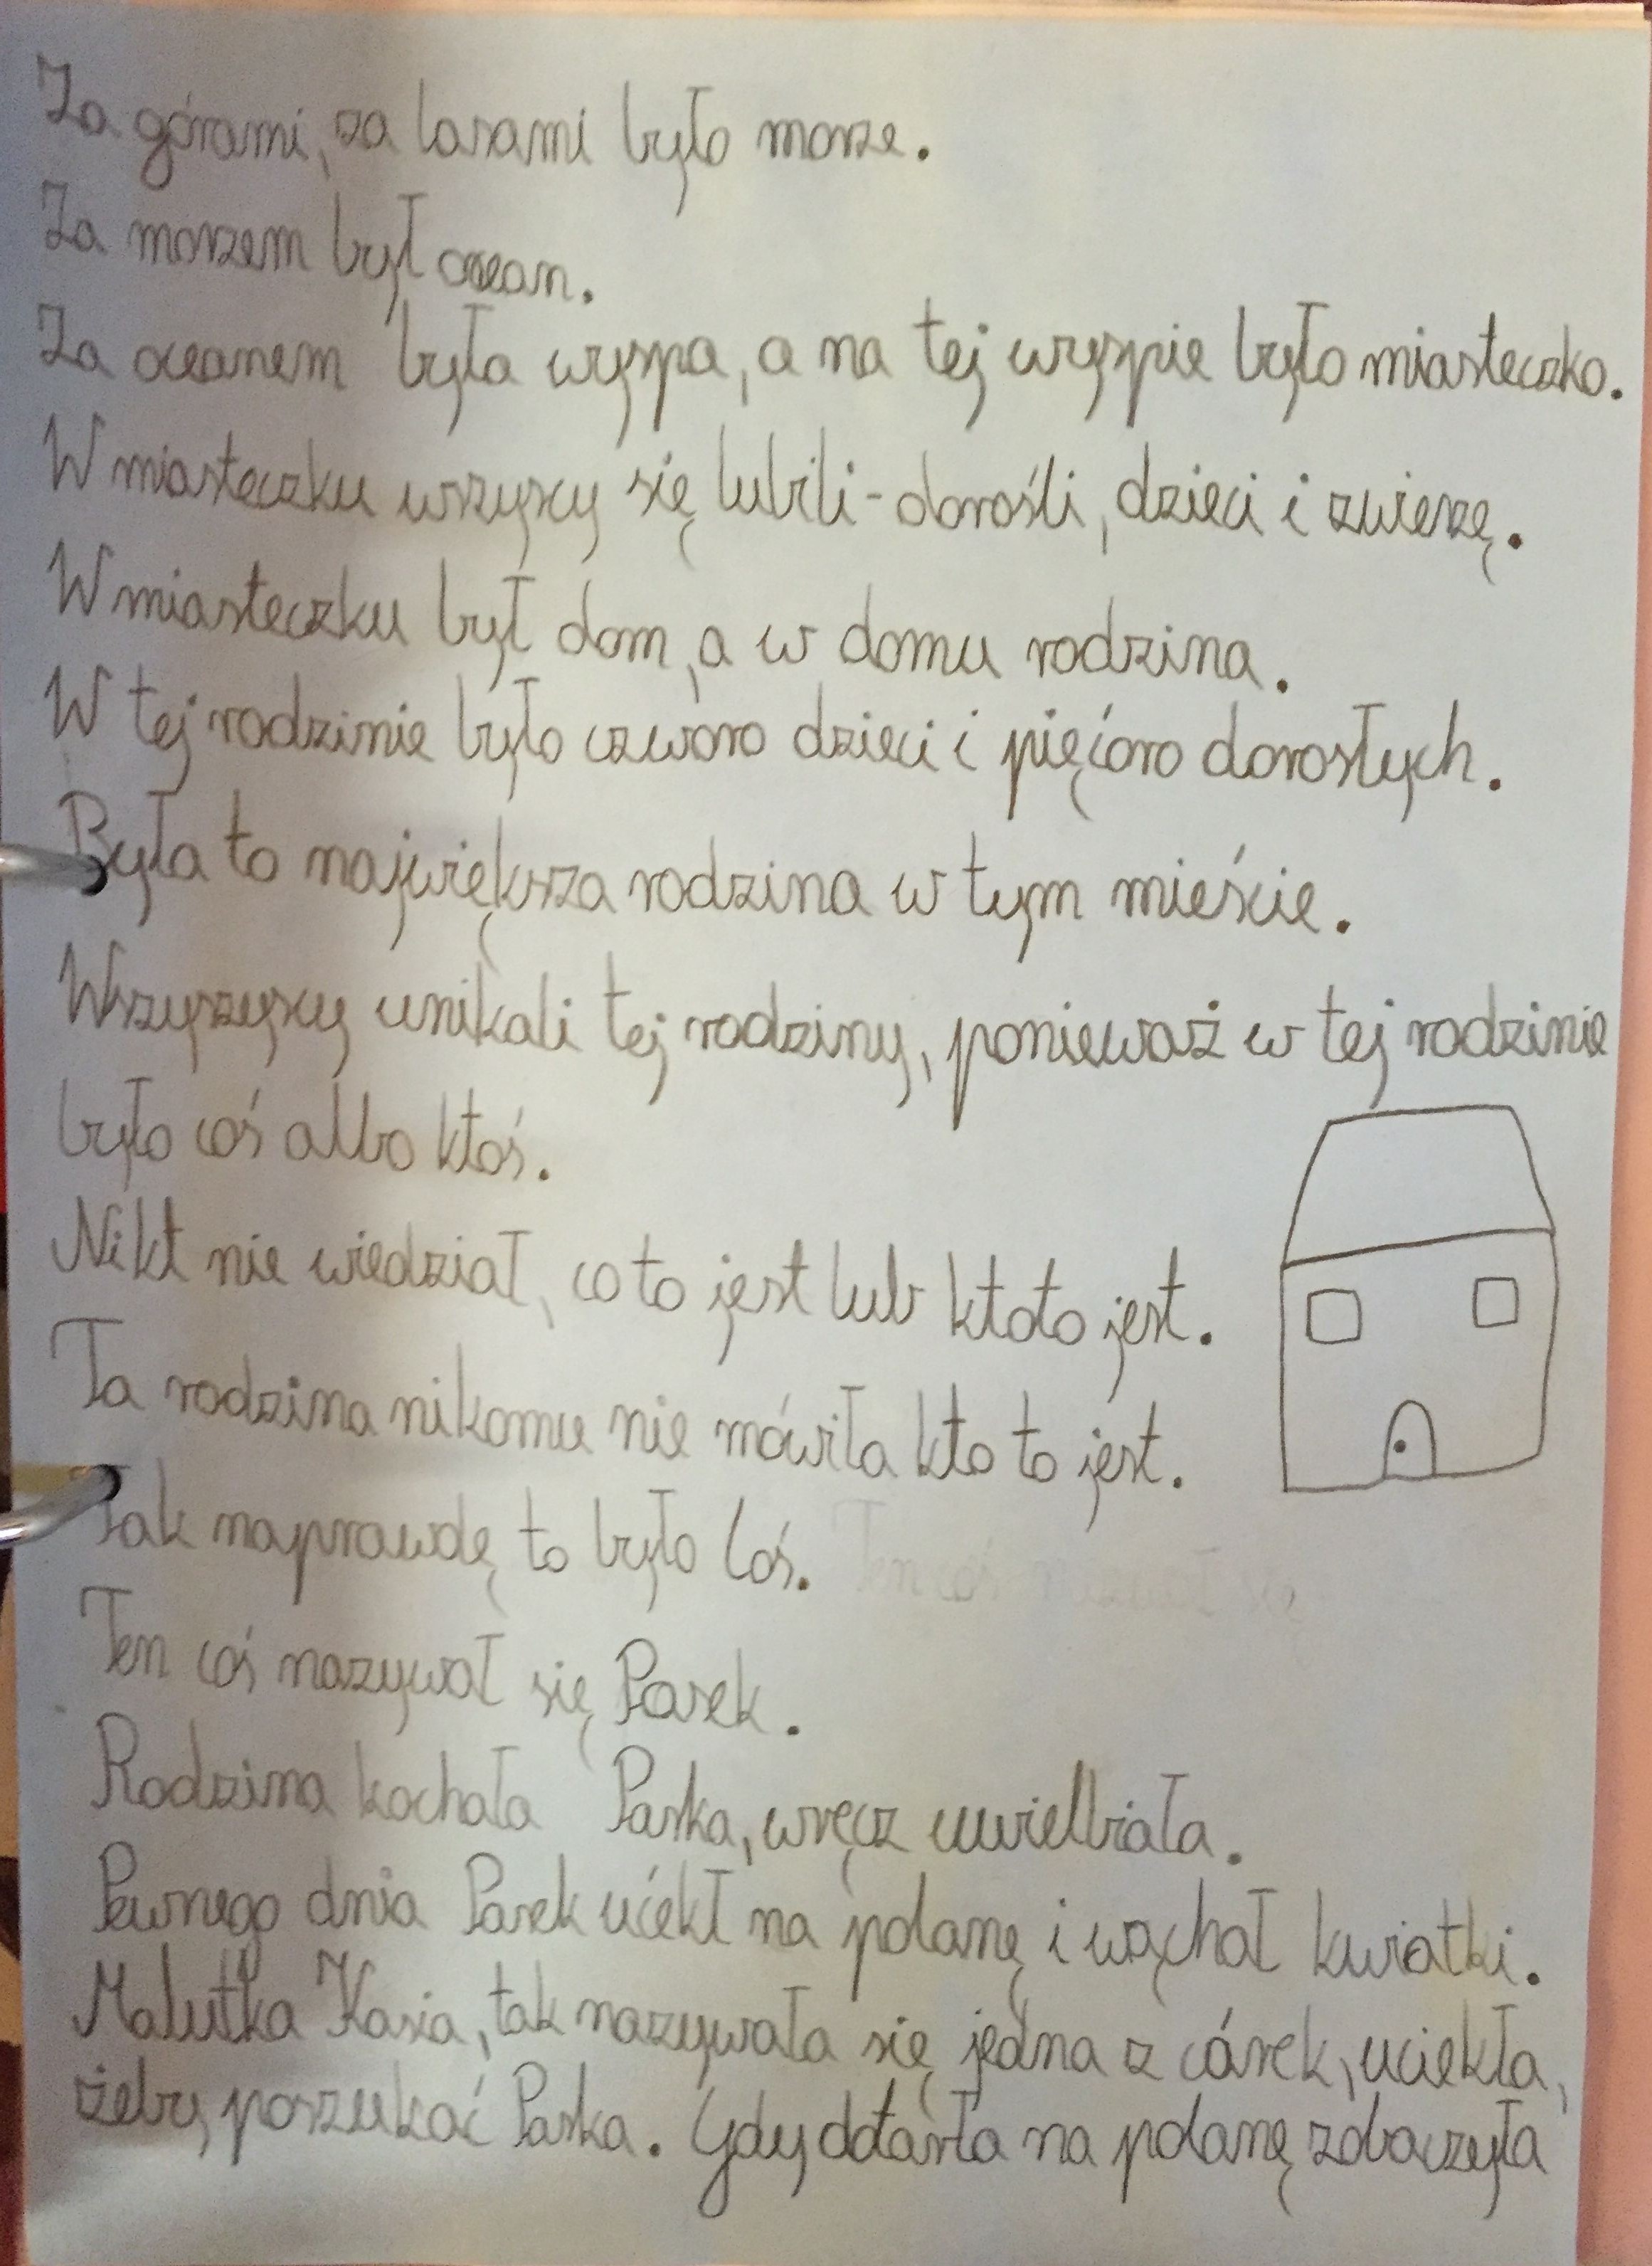 Za górami, za lasami było morze.
Za morzem był ocean.
Za oceanem była wyspa, a na tej wyspie było miasteczko.
W miasteczku wszyscy się lubili - dorośli, dzieci i zwierzę.
W miasteczku był dom, a w domu rodzina.
W tej rodzinie było czworo dzieci i pięćoro dorosłych.
Była to największa rodzina w tym mieście.
Wszyszyscy unikali tej rodziny, ponieważ w tej rodzinie
było coś albo ktoś.
Nikt nie wiedział, co to jest lub kto to jest.
Ta rodzina nikomu nie mówiła kto to jest.
Tak naprawdę to było Coś. Ten coś nazwał się
Ten coś nazywał się Pasek.
Rodzina kochała Paska, wręcz uwielbiała.
Pewnego dnia Pasek ućekł na polanę i wąchał kwiatki.
Malutka Kasia, tak nazywała się jedna z córek, uciekła,
żeby poszukać Paska. Gdy dotarła na polanę zobaczyła